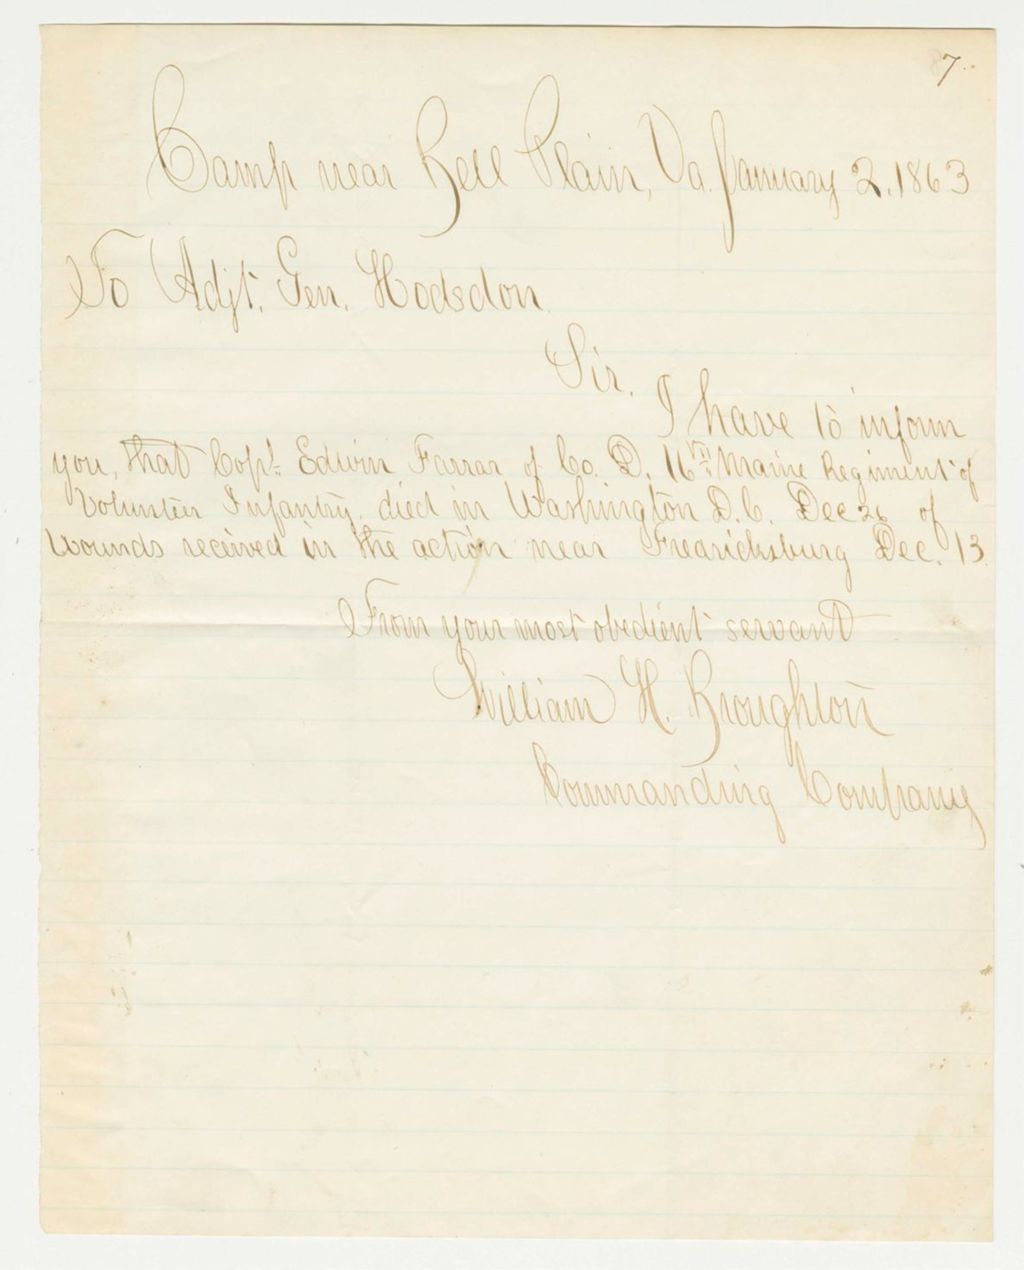 7.
Camp near Bell Plain, Va. January 2. 1863
To Adjt. Gen. Hodsdon.
Sir.
I have to inform
you, that Cop't Edwin Farrar of Co. D. 16th Maine Regiment of
Volunteer Infantry died in Washington D.C. Dec 26 of
Wounds received in the action near Fredricksburg Dec. 13.
From your most obedient servant
William H. Broughton
Commanding Company